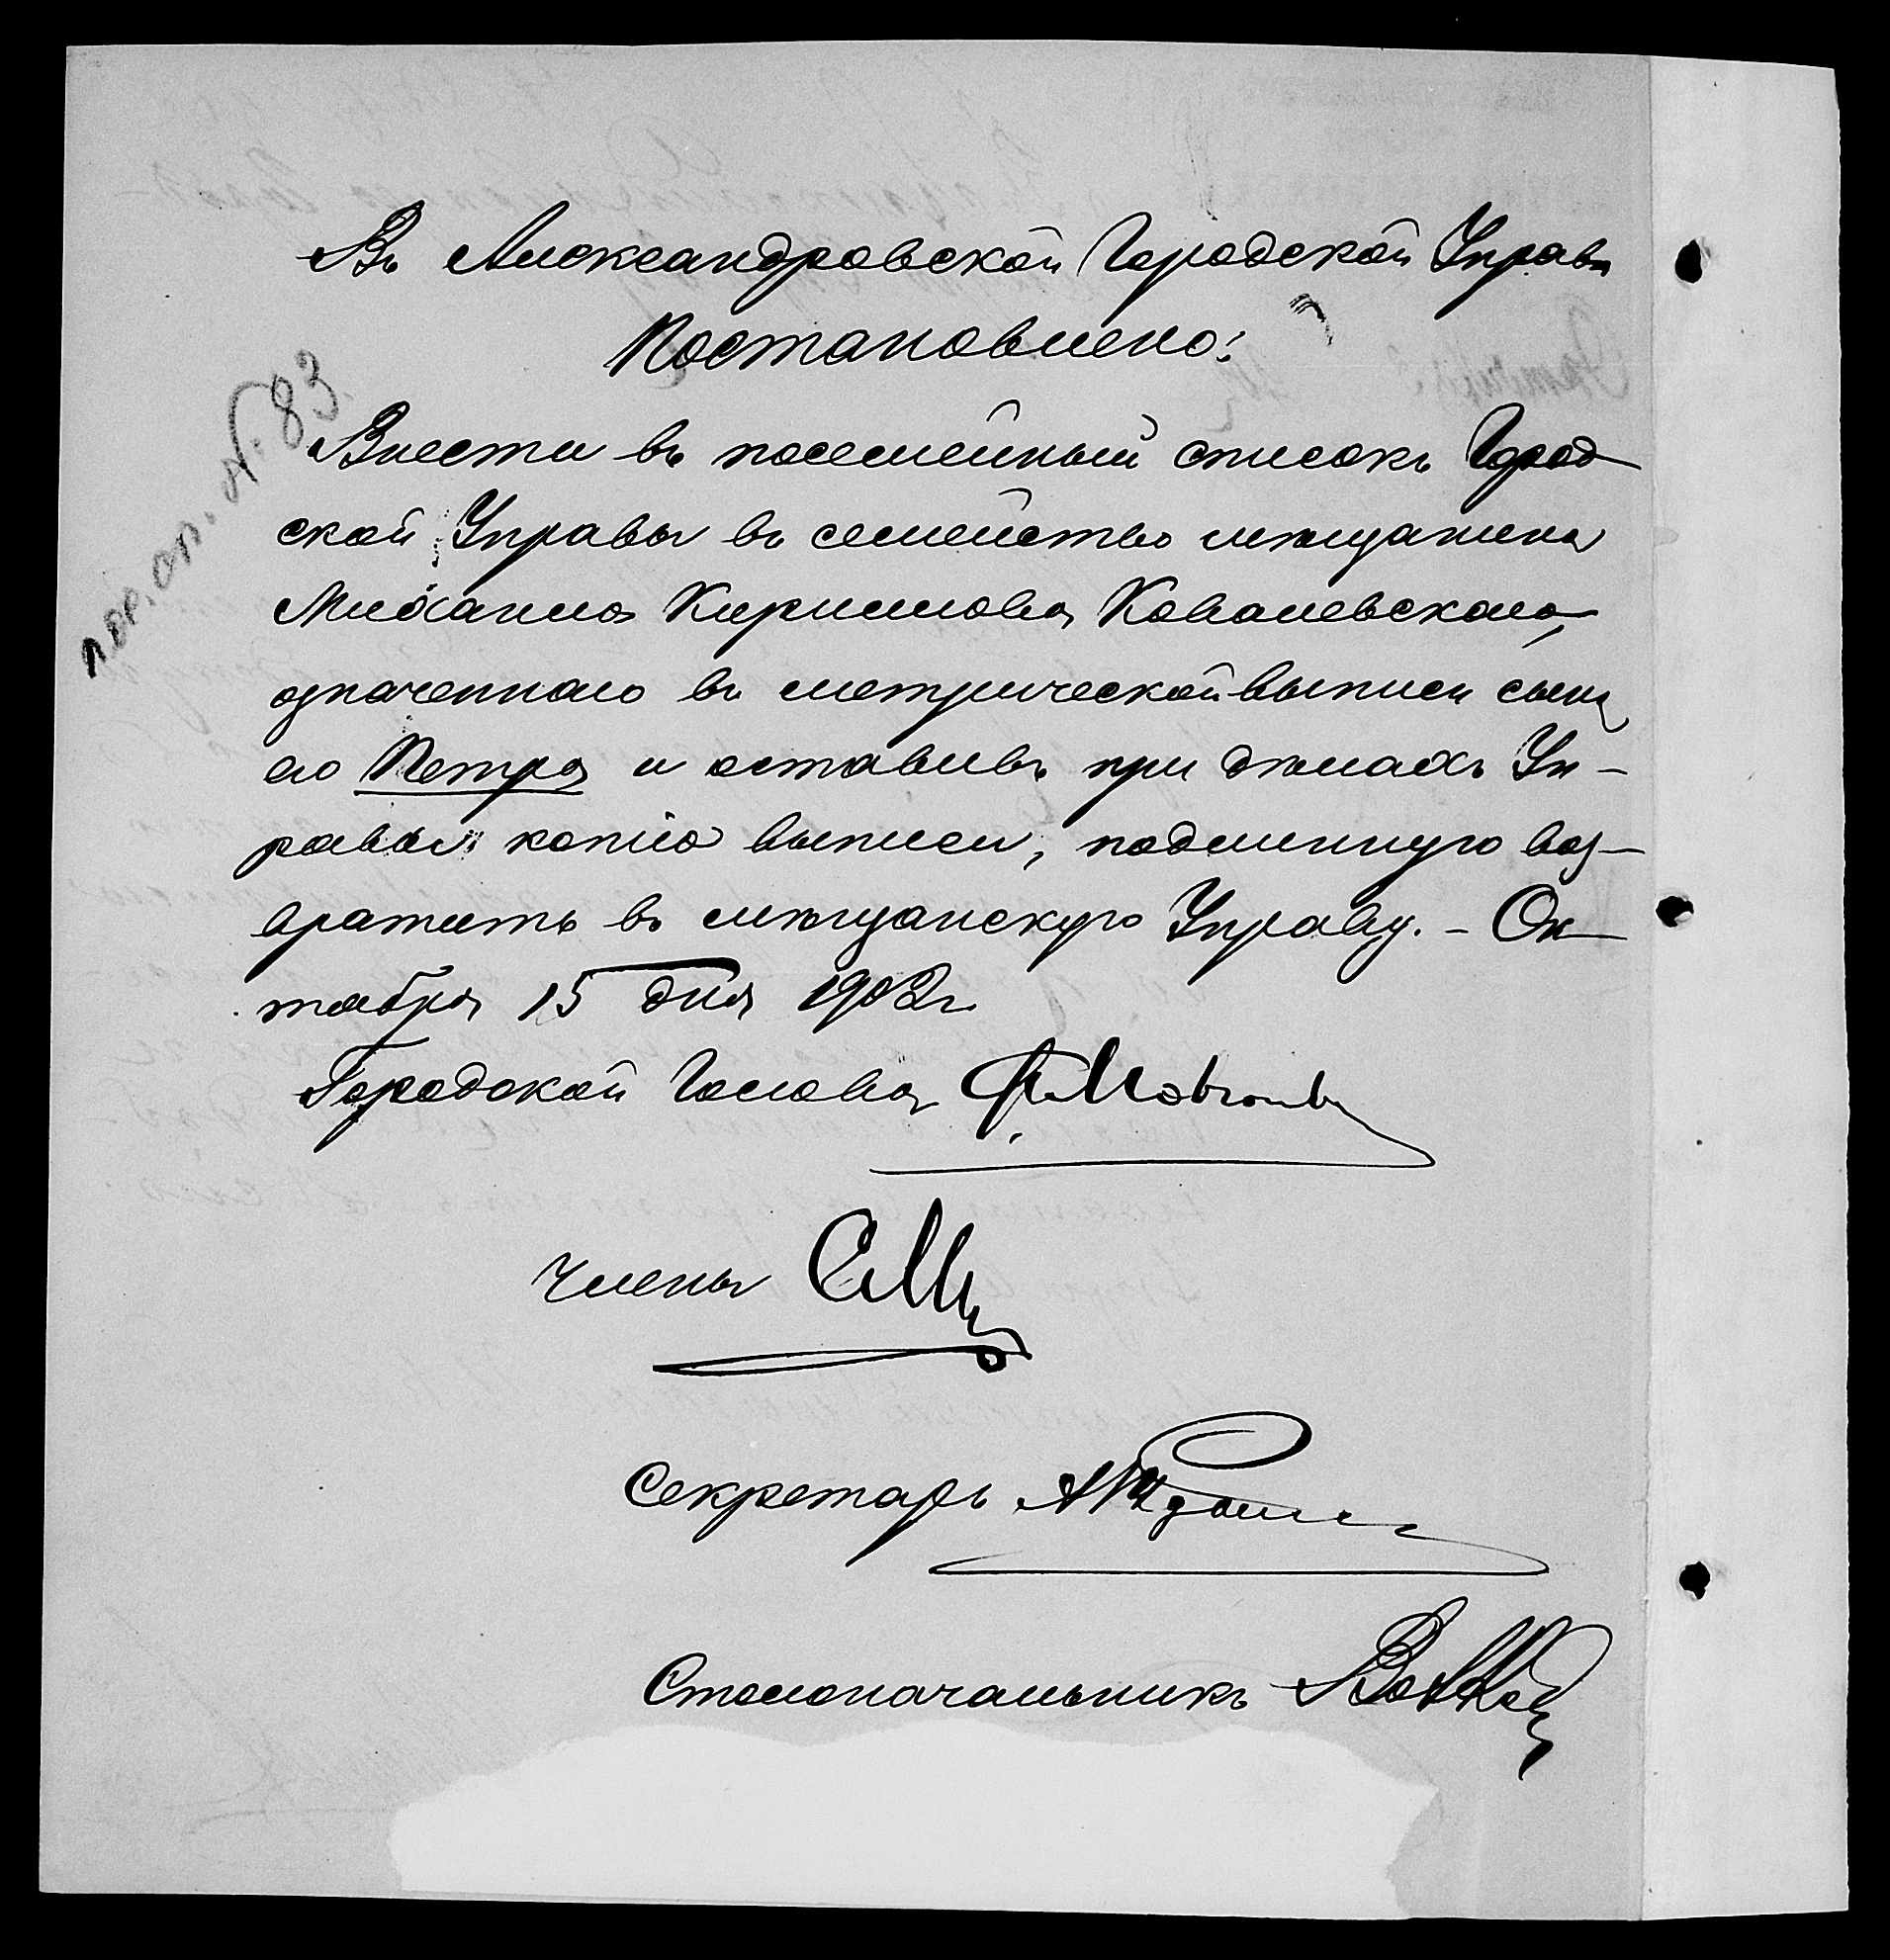 Въ Александровской Городской Управѣ
Постановлено:
пос. сп. № 83.
Внести въ посемейный списокъ Город-
ской Управы въ семейство мѣщанина
Михаила Кириллова Ковалевскаго,
означеннаго въ метрической выписи сына
его Петра и оставивъ при дѣлахъ Уп-
равы копію выписи, подлинную воз-
вратить въ мѣщанскую Управу. - Ок-
тября 15 дня 1902 г.
Городской Голова
Члены
Секретарь
Столоначальникъ